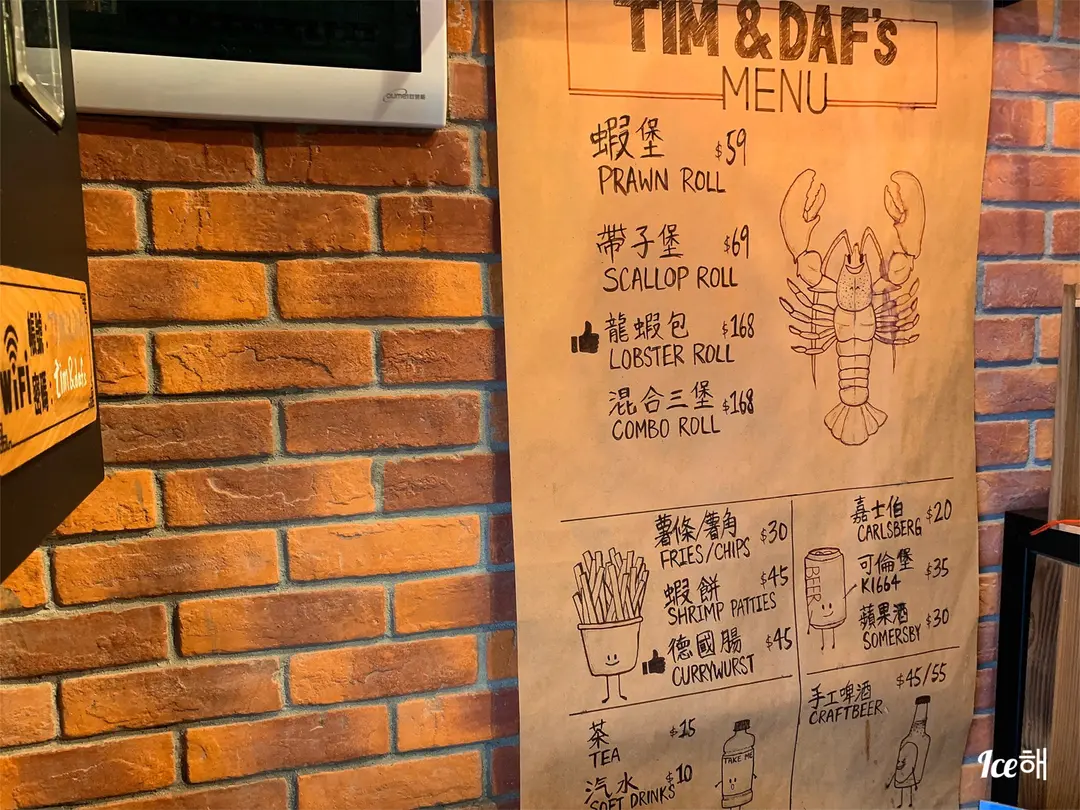 TIM & DAF's
MENU
蝦堡 $59
PRAWN ROLL
帶子堡 $69
SCALLOP ROLL
龍蝦包 $168
LOBSTER ROLL
混合三堡 $168
COMBO ROLL
薯條/薯角 $30
FRIES/CHIPS
蝦餅 $45
SHRIMP PATTIES
德國腸 $45
CURRYWURST
嘉士伯 $20
CARLSBERG
可倫堡 $35
K1664
蘋果酒 $30
SOMERSBY
BEER
手工啤酒 $45/55
CRAFTBEER
茶 $15
TEA
汽水 $10
SOFT DRINKS
TAKE ME
WiFi
密碼:tim&dafs
Ice해